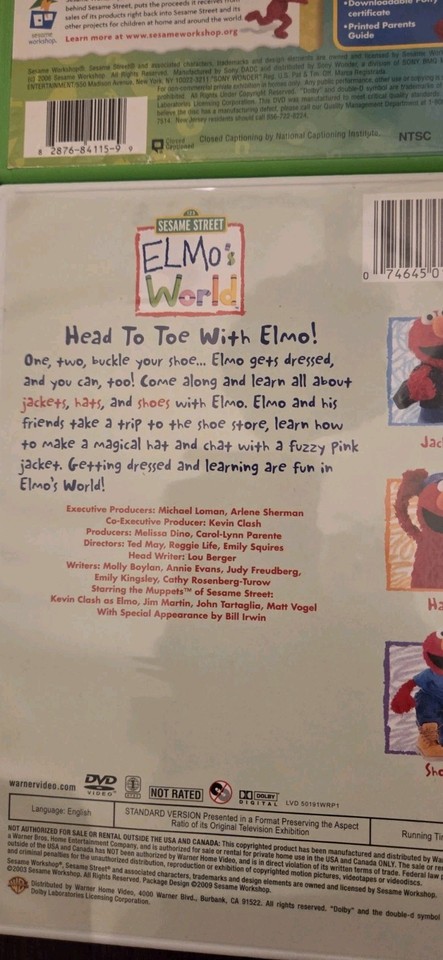 behind Sesame Street, puts the proceeds it receives from
sales of its products right back into Sesame Street and its
other projects for children at home and around the world
sesame
workshop.
Learn more at www.sesameworkshop.org
•Downloadable
certificate
•Printed Parents
Guide
Sesame Workshop®, Sesame Street® and associated characters, trademarks and design elements are owned and licensed by Sesame
Sesame Workshop. All Rights Reserved. Manufactured by Sony DADC and distributed by Sony Wonder, a division of SONY BMG
ENTERTAINMENT/550 Madison Avenue, New York, NY
8 2876-84115-9 9
Closed
Captioned
Closed Captioning by National Captioning Institute.
NTSC
SESAME STREET
ELMO's
World
0 74645 0
Head To Toe With Elmo!
One, two, buckle your shoe... Elmo gets dressed,
and you can, too! Come along and learn all about
jackets, hats, and shoes with Elmo. Elmo and his
friends take a trip to the shoe store, learn how
to make a magical hat and chat with a fuzzy pink
jacket. Getting dressed and learning are fun in
Elmo's World!
Jac
Ha
Sho
Executive Producers: Michael Loman, Arlene Sherman
Co-Executive Producer: Kevin Clash
Producers: Melissa Dino, Carol-Lynn Parente
Directors: Ted May, Reggie Life, Emily Squires
Head Writer: Lou Berger
Writers: Molly Boylan, Annie Evans, Judy Freudberg,
Emily Kingsley, Cathy Rosenberg-Turow
Starring the Muppets™ of Sesame Street:
Kevin Clash as Elmo, Jim Martin, John Tartaglia, Matt Vogel
With Special Appearance by Bill Irwin
warnervideo.com
DVD
VIDEO
NOT RATED
DOLBY
DIGITAL
LVD 50191WRP1
Language: English
STANDARD VERSION Presented in a Format Preserving the Aspect
Ratio of its Original Television Exhibition
Running Ti
NOT AUTHORIZED FOR SALE OR RENTAL OUTSIDE THE USA AND CANADA: This copyrighted product has been manufactured and distributed by Wa
a Warner Bros. Home Entertainment Company, and is authorized for sale or rental for private home use in the USA and Canada ONLY. The sale or re
outside of the USA and Canada has NOT been authorized by Warner Home Video, and is in direct violation of its written terms of trade. Federal law
and criminal penalties for the unauthorized distribution, reproduction or exhibition of copyrighted motion pictures, videotapes or videodiscs.
Sesame Workshop®, Sesame Street® and associated characters, trademarks and design elements are owned and licensed by Sesame Workshop.
©2003 Sesame Workshop. All Rights Reserved. Package Design ©2009 Sesame Workshop.
Distributed by Warner Home Video, 4000 Warner Blvd., Burbank, CA 91522. All rights reserved. "Dolby" and the double-d symbol
Dolby Laboratories Licensing Corporation.